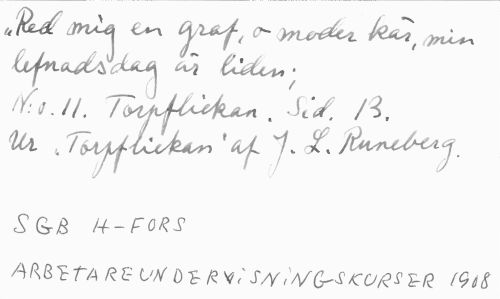 „Red mig en graf, o moder kär, min
lefnadsdag är liden;
N:o 11. Torpflickan. Sid. 13.
Ur „Torpflickan" af J. L. Runeberg.
SGB H-FORS
ARBETAREUNDERVISNINGSKURSER 1908